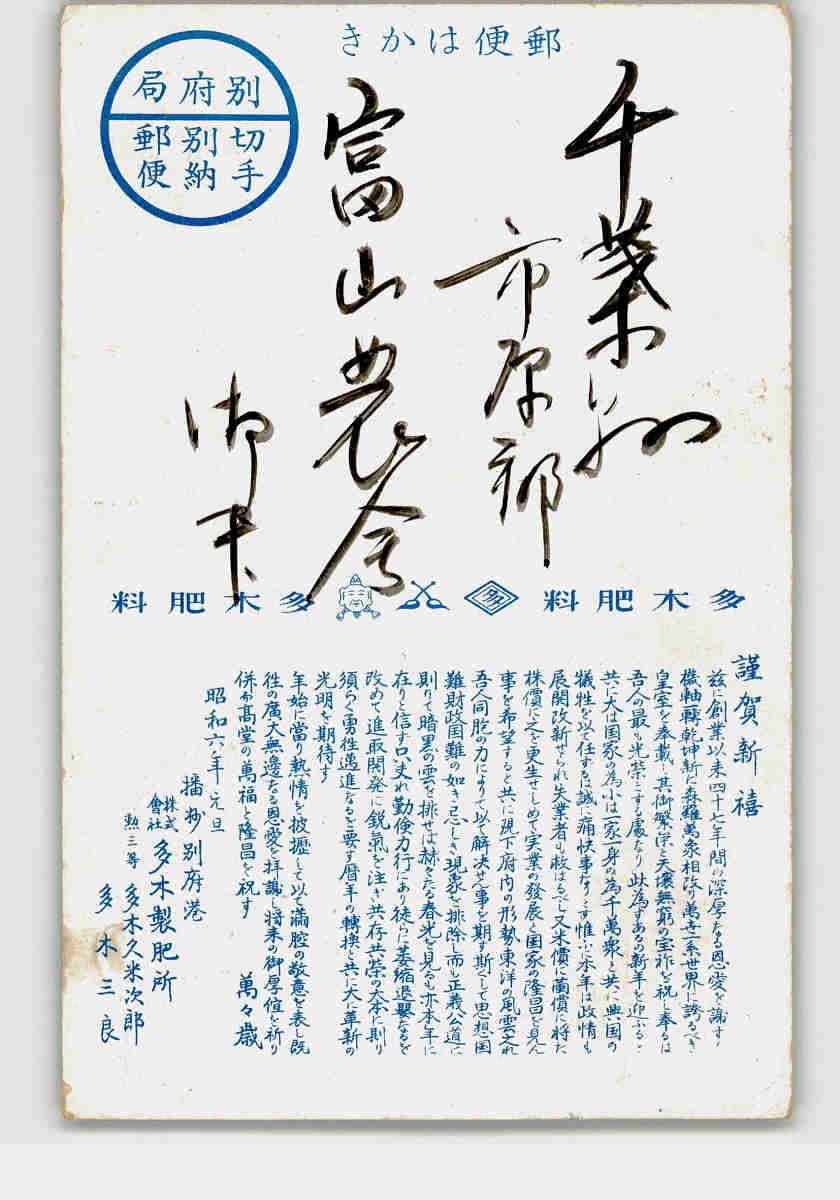 郵便はかき
別府局
切手
別納
郵便
千葉縣
市原郡
富山農会
御中
多木肥料 多 多木肥料
謹賀新禧
茲に創業以来四十七年間の深厚なる恩愛を謝す
機軸一轉乾坤新に森羅萬象相改り萬古一系世界に誇るべき
皇室を奉戴し其御繁栄と天壌無窮の宝祚を祝し奉るは
吾人の最も光栄とする處なり此為すあるの新年を迎ふると
共に大は国家の為小は一家一身の為千萬衆と共に興国の
犠牲を以て任ずるは誠に痛快事なりとす惟ふに本年は政情も
展開改新せられ失業者も救はるべし又米價に蘭價に将た
株價に人を更生せしめて実業の發展と国家の隆昌を見ん
事を希望すると共に現下府内の形勢東洋の風雲丈れ
吾人同胞の力によりて以て解決せん事を期す斯くして思想国
難財政国難の如き忌しき現象を排除し而も正義公道に
則りて暗黒の雲を排せば赫々たる春光を見るも亦本年に
在りと信ず只丈れ勤倹力行にあり徒らに萎縮退嬰なるを
改めて進取開発に鋭氣を注ぎ共存共栄の大本に則り
須らく勇往邁進なるを要す暦年の轉換と共に大に革新の
光明を期待す
年始に當り熱情を披攊して以て満腔の敬意を表し既
往の廣大無邊なる恩愛を拝謝し将来の御厚誼を祈り
併か高堂の萬福と隆昌を祝す 萬々歳
昭和六年元旦
播州別府港
株式會社 多木製肥所
勲三等 多木久米次郎
多木三良